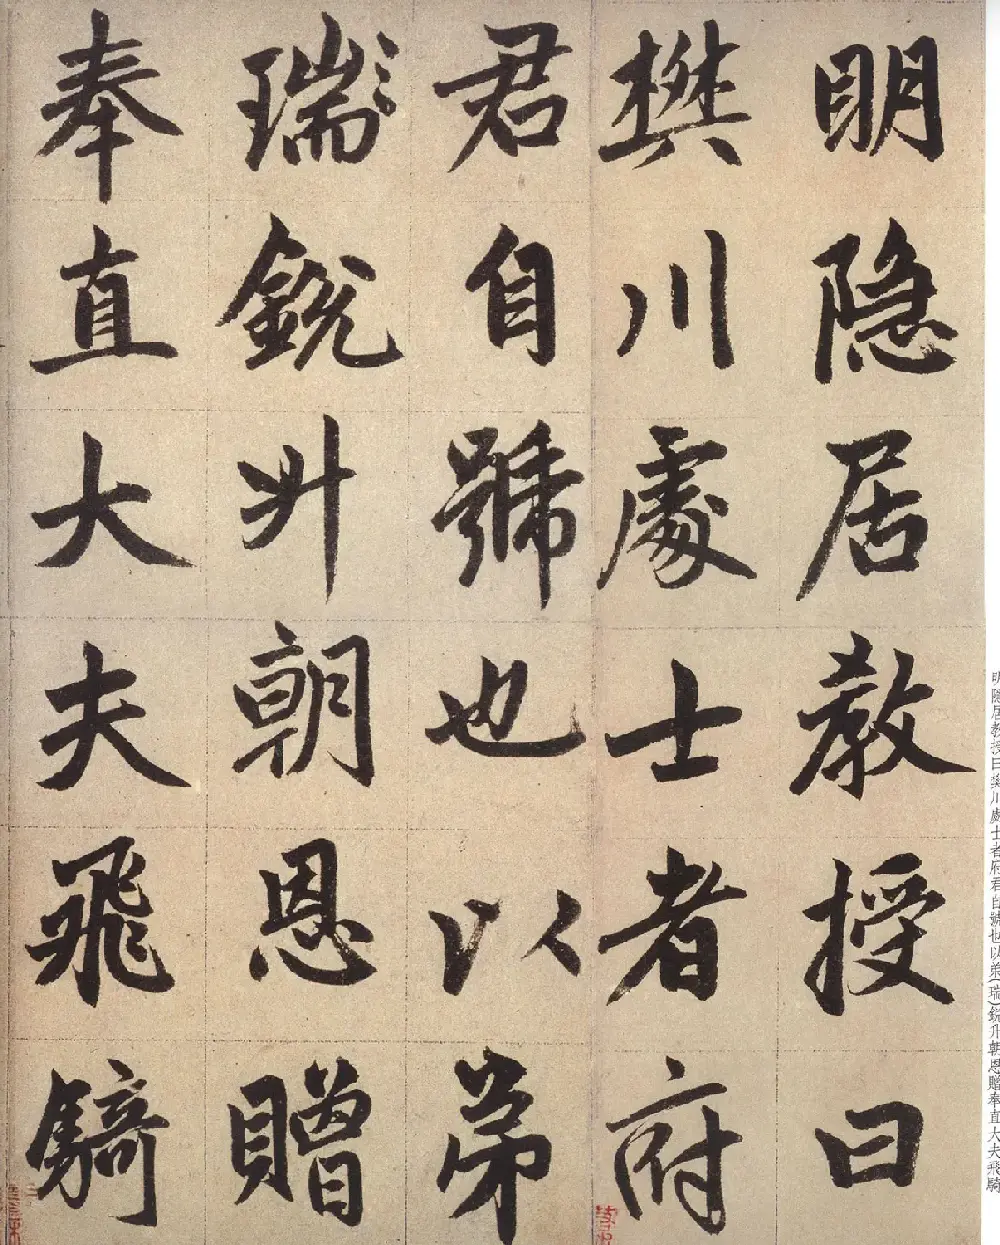 明隐居教授曰
樊川處士者府
君自號也以弟
瑞銳升朝恩贈
奉直大夫飛騎
明隱居教授曰樊川處士者府君自號也以弟(瑞)銳升朝恩贈奉直大夫飛騎